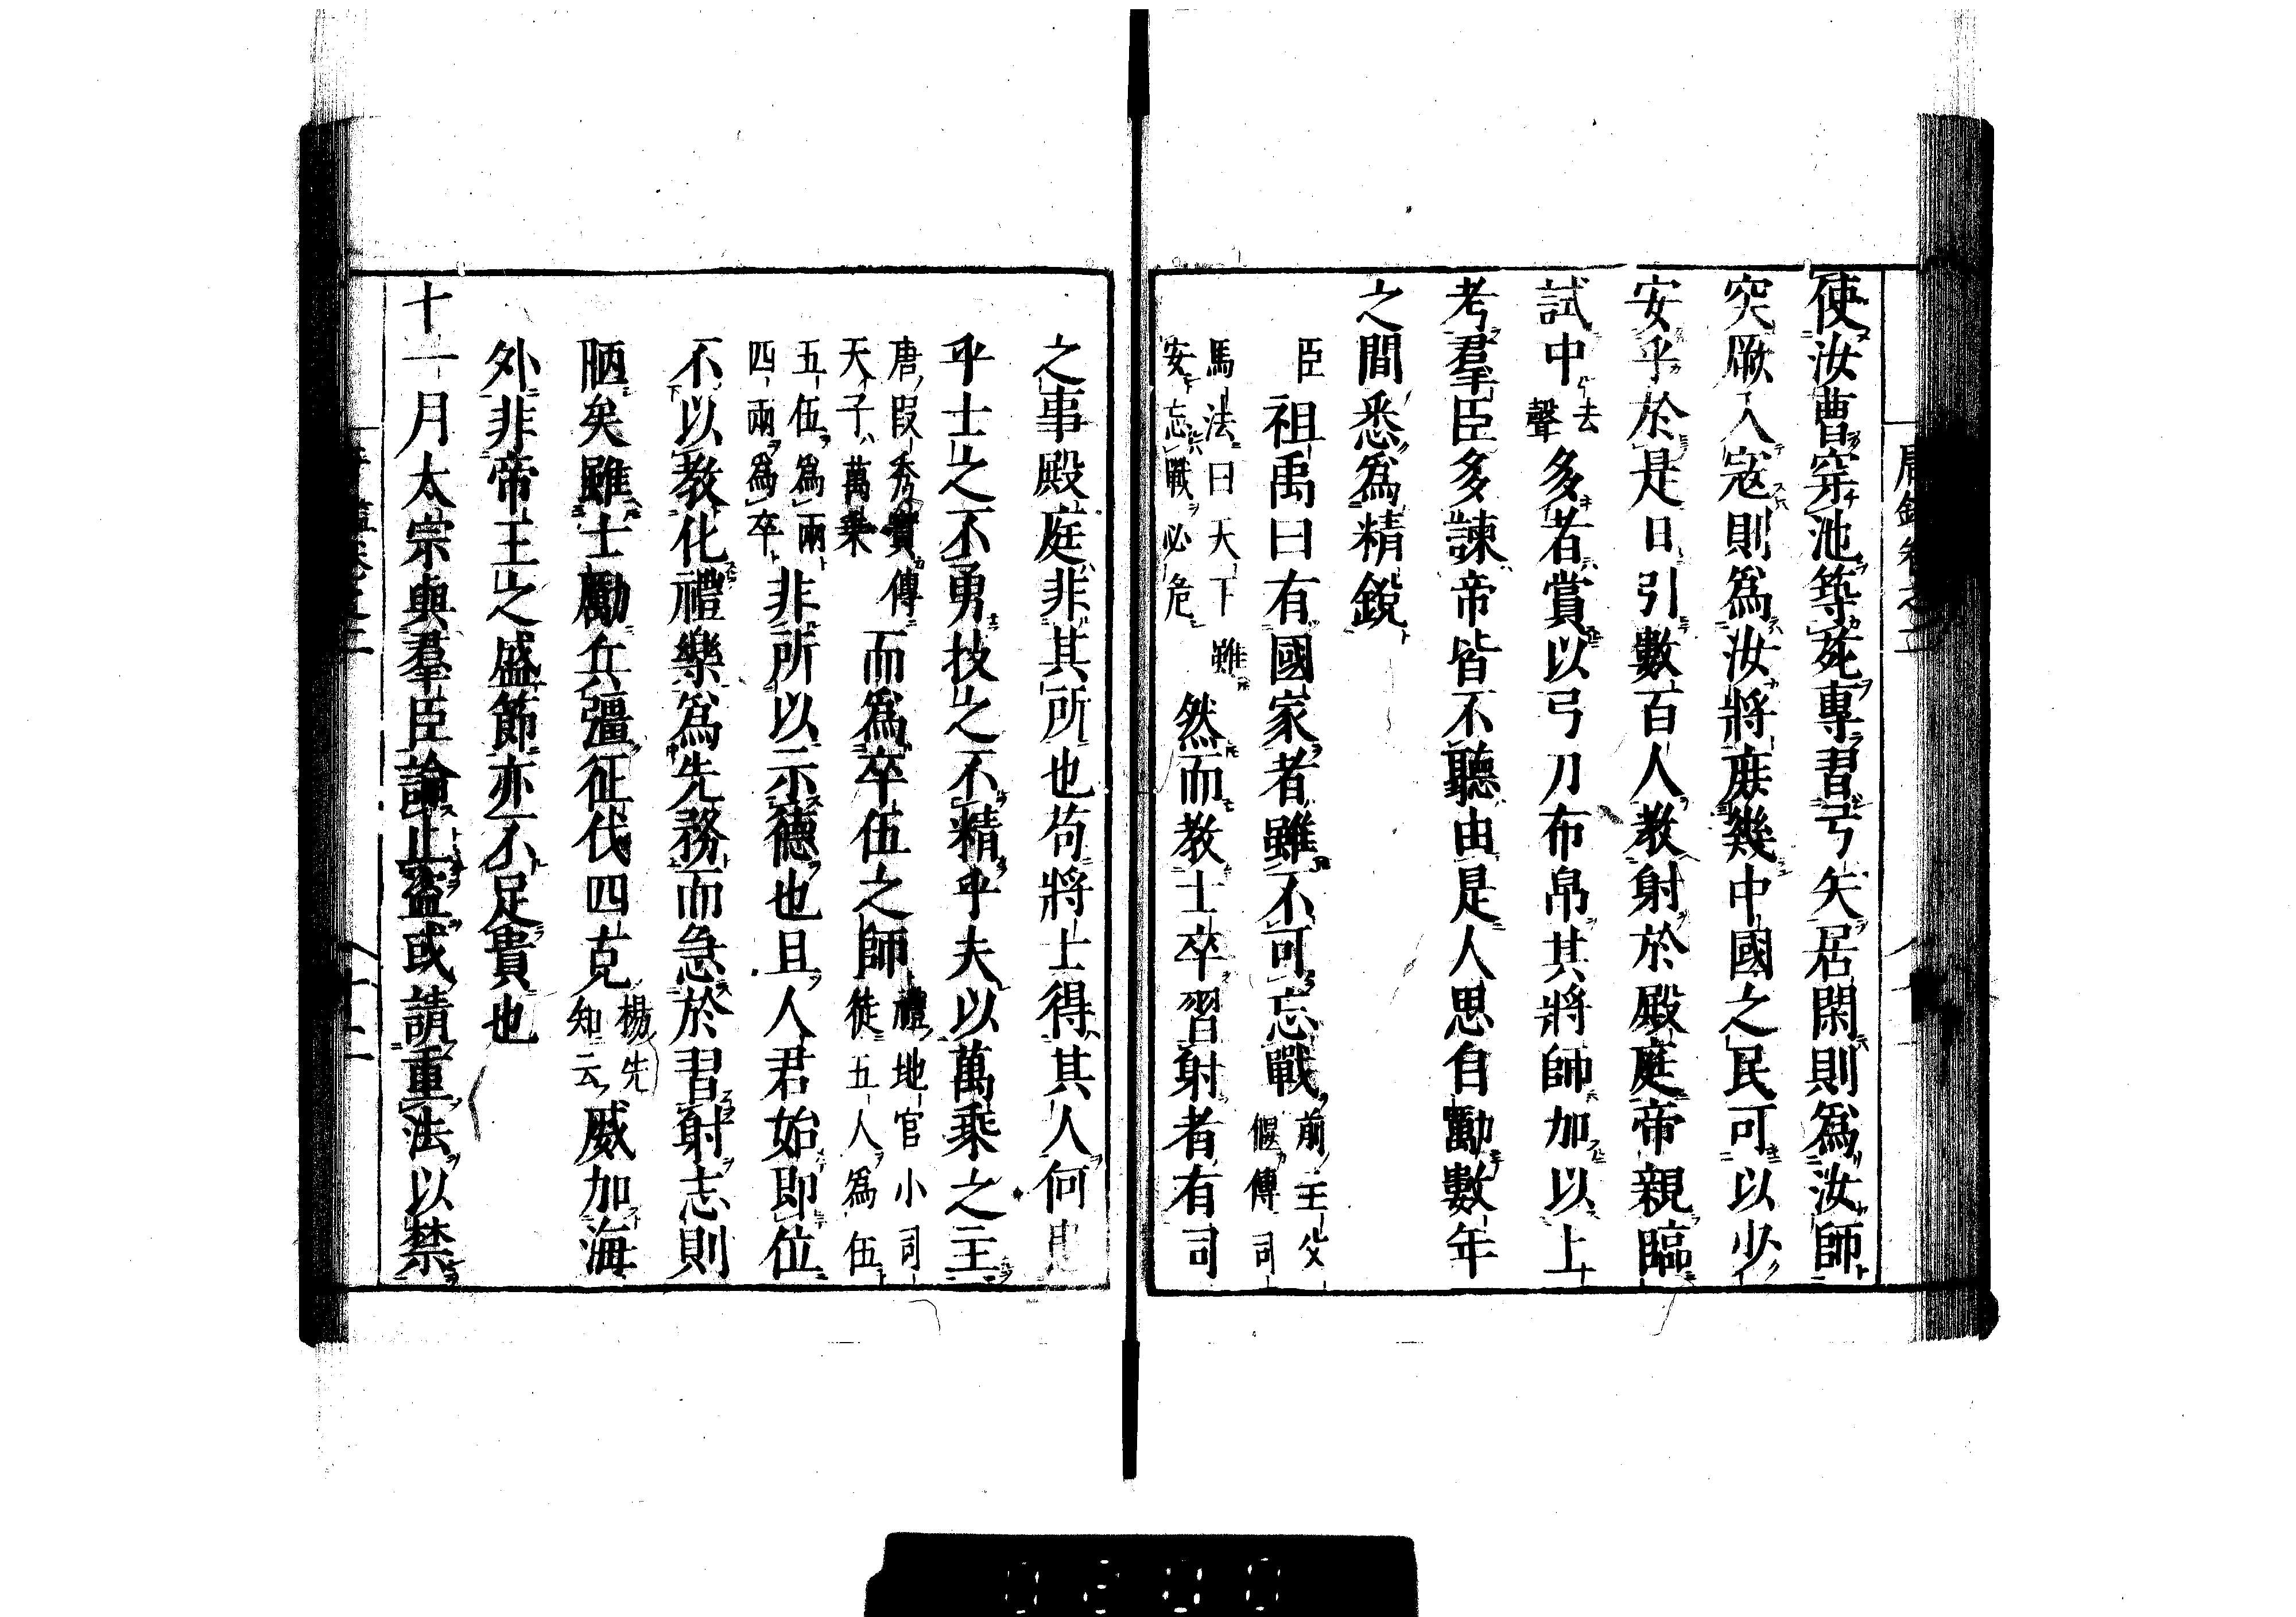 使汝曹穿池築苑專習弓矢居閑則爲汝師
突厥入寇則爲汝將庶幾中國之民可以少
安乎於是日引數百人教射於殿庭帝親臨
試中去聲多者賞以弓刀布帛其將師加以上
考羣臣多諫帝皆不聽由是人思自勵數年
之間悉爲精鋭
臣祖禹曰有國家者雖不可忘戰前主父偃傳司
馬法曰天下雖安忘戰必危然而教士卒習射者有司
之事殿庭非其所也苟將士得其人何
乎士之不勇技之不精乎夫以萬乘之主
唐叚秀實傳天子萬乘而爲卒伍之師禮地官小司徒五人爲伍
五伍爲兩四兩爲卒非所以示德也且人君始即位
不以教化禮樂爲先務而急於習射志則
陋矣雖士勵兵彊征伐四克楊先知云威加海
外非帝王之盛節亦不足貴也
十一月太宗與羣臣論止盜或請重法以禁